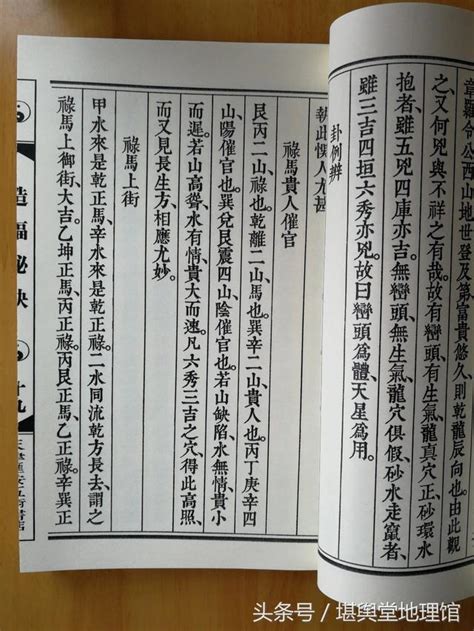 章羅今公西山地世登及第富貴悠久、則乾龍辰向也、由此觀
之、又何凶與不祥之有哉。故有巒頭、有生氣、龍真穴正、砂環水
抱者、雖五凶四庫亦吉。無巒頭、無生氣、龍穴俱假、砂水走竄者、
雖三吉四垣六秀亦凶。故曰巒頭為體、天星為用。
卦例辨
執此悞人尤甚
祿馬貴人催官
艮丙二山、祿也。乾離二山、馬也。巽辛二山、貴人也。丙丁庚辛四
山、陽催官也。巽兌艮震四山、陰催官也。若山缺陷水無情、貴小
而遲。若山高聳、水有情、貴大而速。凡六秀三吉之穴、得此高照、
而又見長生方、相應尤妙。
祿馬上街
甲水來是乾正馬、辛水來是乾正祿。二水同流乾方長去、謂之
祿馬上御街、大吉。乙坤正馬、丙正祿。丙艮正馬、乙正祿。辛巽正
造福秘訣
十九
头条号／堪舆堂地理馆